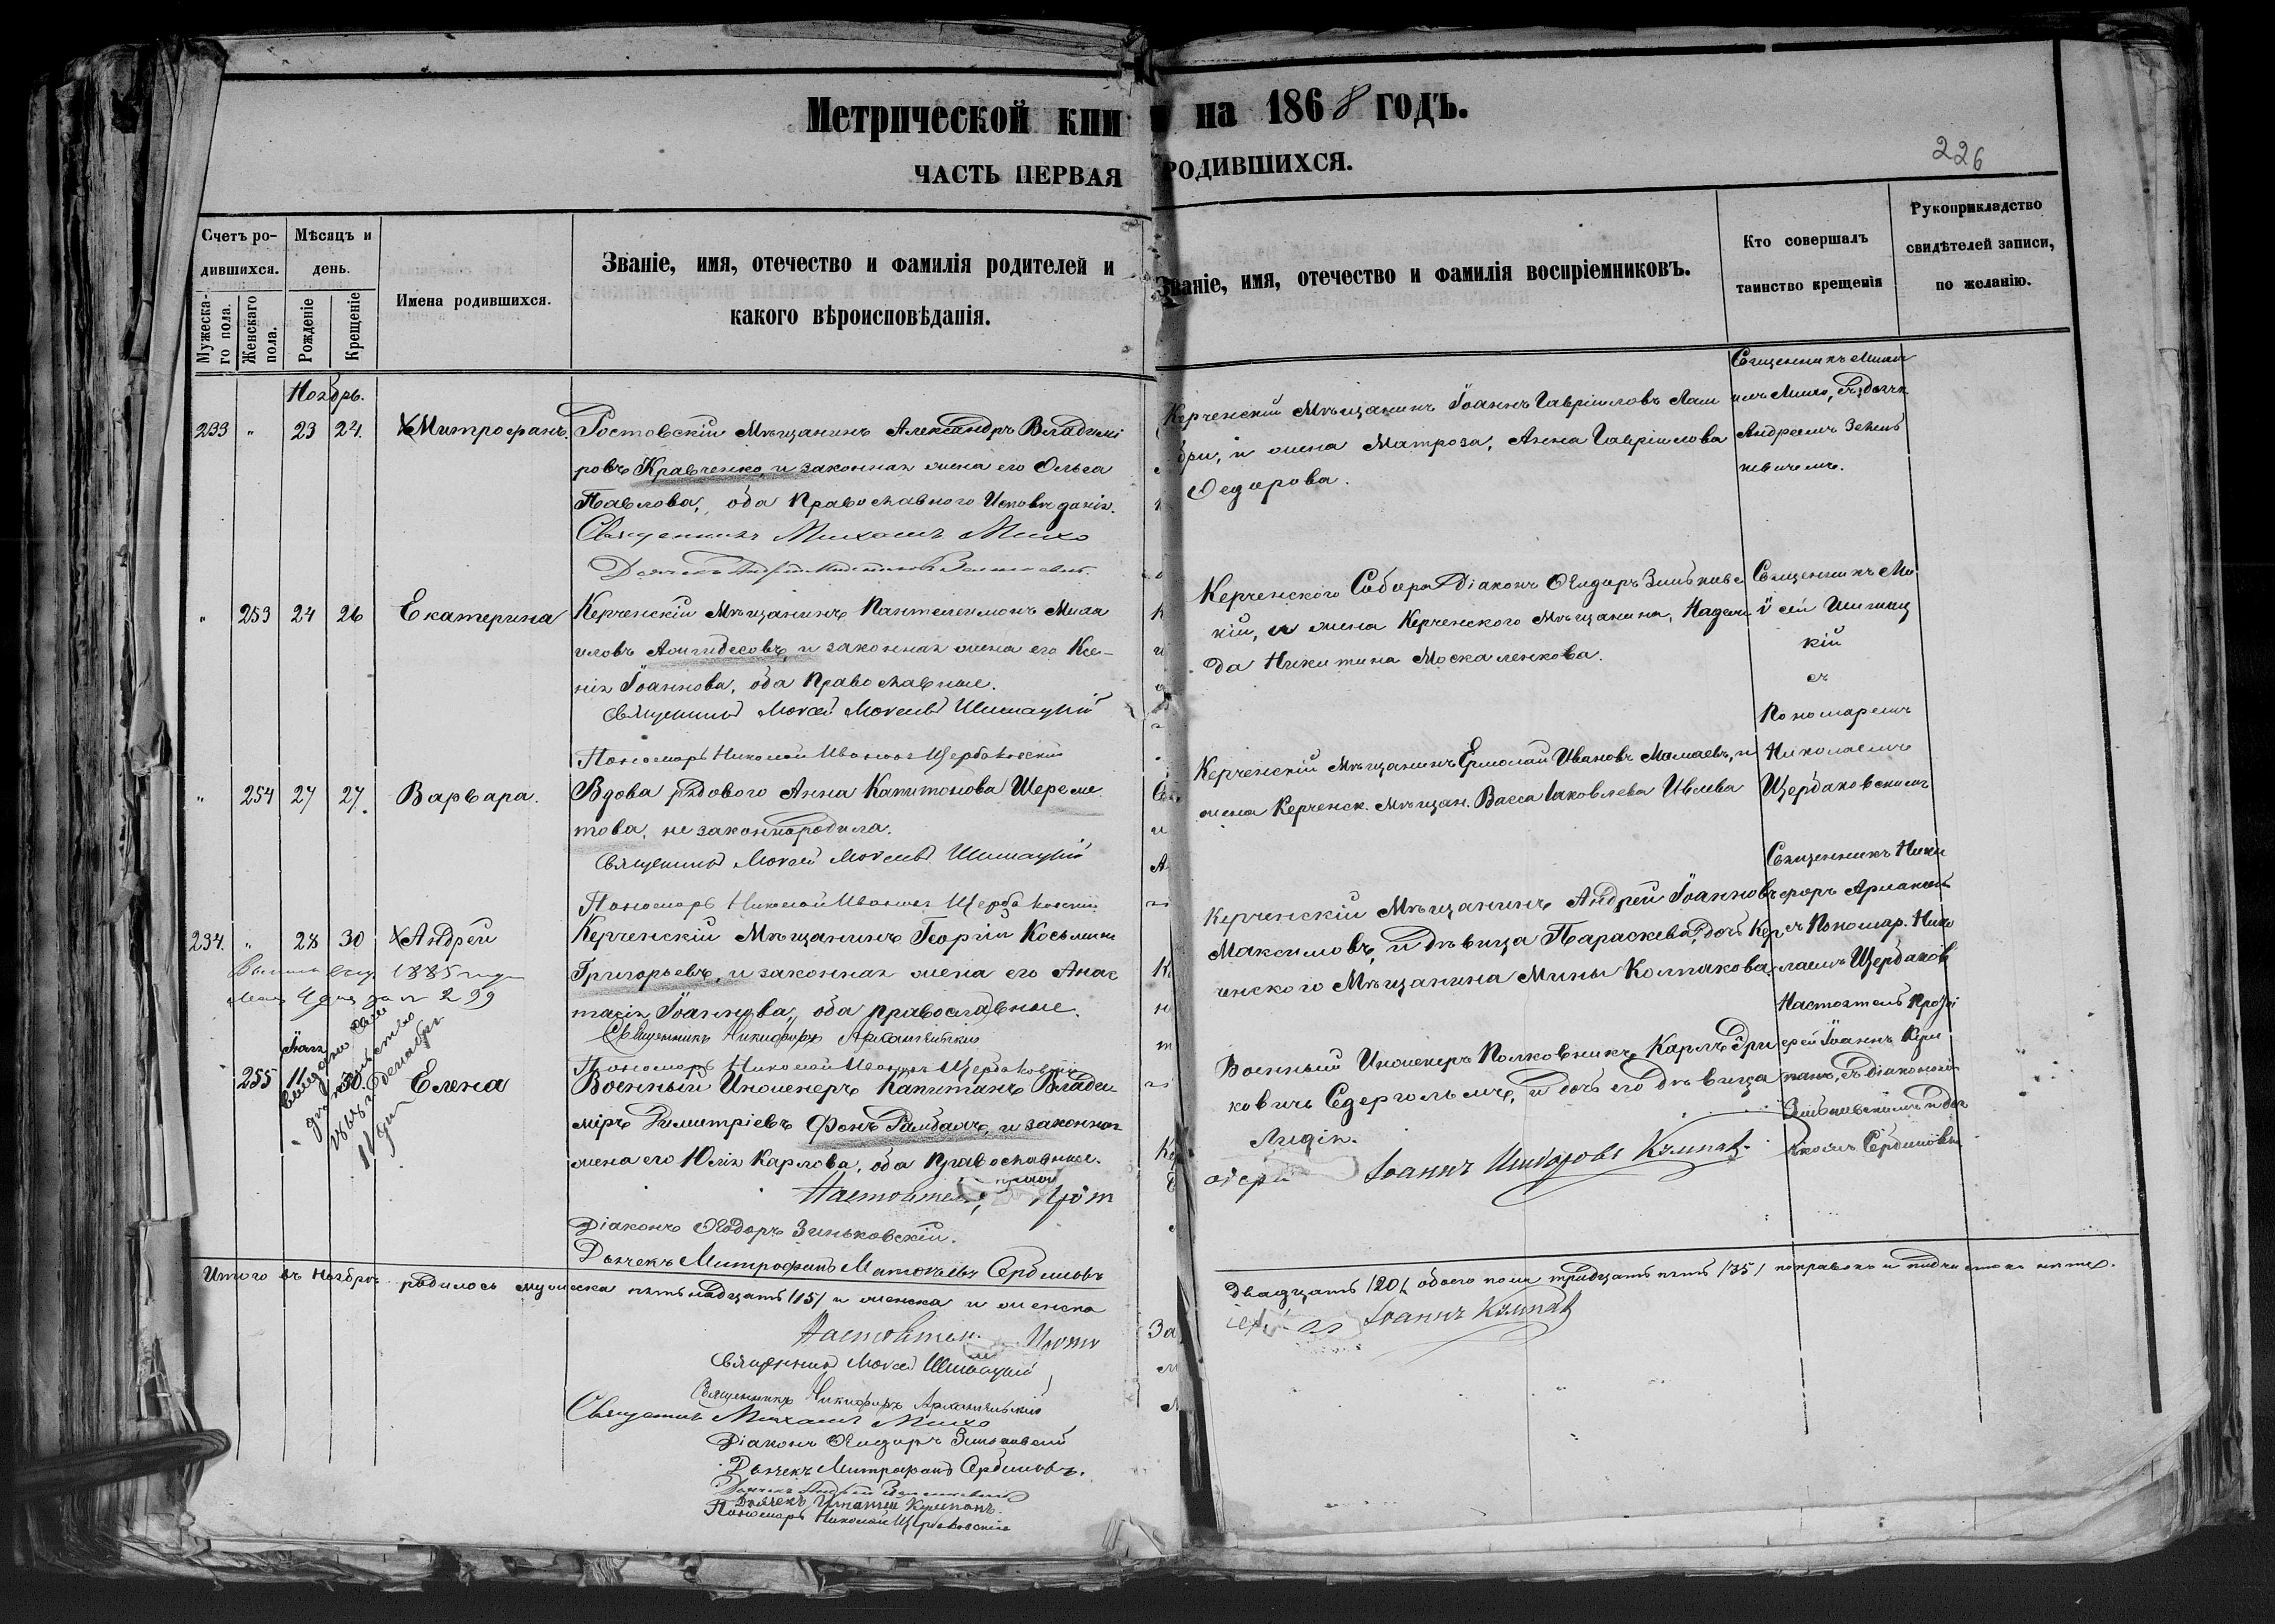 Метрической кни на 1868 годъ.
ЧАСТЬ ПЕРВАЯ РОДИВШИХСЯ.
226
Счетъ ро-
дившихся.
Мужеска-
го пола.
Женскаго
пола.
Мѣсяцъ и
день.
Рожденіе
Крещеніе
Имена родившихся.
Званіе, имя, отечество и фамилія родителей и
какого вѣроисповѣданія.
Званіе, имя, отечество и фамилія воспріемниковъ.
Кто совершалъ
таинство крещенія
Рукоприкладство
свидѣтелей записи,
по желанію.
Ноябрь.
233 " 23 24. Митрофанъ.
Ростовскій Мѣщанинъ Александръ Владимі
ровъ Кравченко, и законная жена его Ольга
Павлова, оба Православного Исповѣданія.
Священникъ Михаилъ Михо
Керченскій Мѣщанинъ Іоаннъ Гавріиловъ
и жена Матроза, Анна Гавріилова
Федорова.
Священникъ
Андреемъ
" 253 24 26 Екатерина
Керченскій Мѣщанинъ Пантелеимонъ Миха
иловъ и законная жена его Ксе-
нія Іоаннова, оба Православные.
Священникъ Моисей Моисеевъ Шимацкій
Пономарь Николай Ивановъ Щербаковскій
Керченского Собора Діаконъ Ѳеодоръ Зиньковс
кій, и жена Керченского Мѣщанина, Надеж
да Никитина Москаленкова.
Священникъ Мо
исей Шимац
кій
съ
Пономаремъ
Николаемъ
Щербаковскимъ
" 254 27 27. Варвара.
Вдова рядового Анна Капитонова Шереме
това, незаконнородила.
Священникъ Моисей Моисеевъ Шимацкій
Пономарь Николай Ивановъ Щербаковскій
Керченскій Мѣщанинъ Ермолай Ивановъ Мамаевъ, и
жена Керченск. мѣщан. Васса Іаковлева Ивлева
234. " 28 30 Андрей
1885 года
299
Керченскій Мѣщанинъ Георгій Косьминъ
Григорьевъ, и законная жена его Анас
тасія Іоаннова, оба православные.
Священникъ Никифоръ Архангельскій
Пономарь Николай Ивановъ Щербаковскій
Керченскій Мѣщанинъ Андрей Іоанновъ
Максимовъ, и дѣвица Параскева, дочь Кер
ченского Мѣщанина Мины Колпакова
Священникъ Ники
форъ Архангел
съ Пономар. Нико
лаемъ Щербаков
255 11 30 Елена
Военный Инженеръ Капитанъ Влади
міръ Димитріевъ Фонъ и законная
жена его Юлія Карлова, оба Православные.
Настоятель Прот
Діаконъ Ѳеодоръ Зиньковскій.
Дьячекъ Митрофанъ Матвѣевъ Сербиновъ
Военный Инженеръ Полковникъ Карлъ Гри
ковичъ Седергольмъ, и дочь его дѣвица
Лидія.
Іоаннъ
Настоятель Прото
ерей Іоаннъ
Итого въ Ноябрѣ родилось мужеска пятьнадцать /15/ и женска и женска
двадцать /20/, обоего пола тридцать пять /35/
Настоятель Прото
Іоаннъ
Священникъ Моисей Шимацкій
Священникъ Никифоръ Архангельскій
Священникъ Михаилъ Михо
Діаконъ Ѳеодоръ Зиньковскій
Дьячекъ Митрофанъ Сербиновъ.
Дьячекъ
Пономарь Николай Щербаковскій